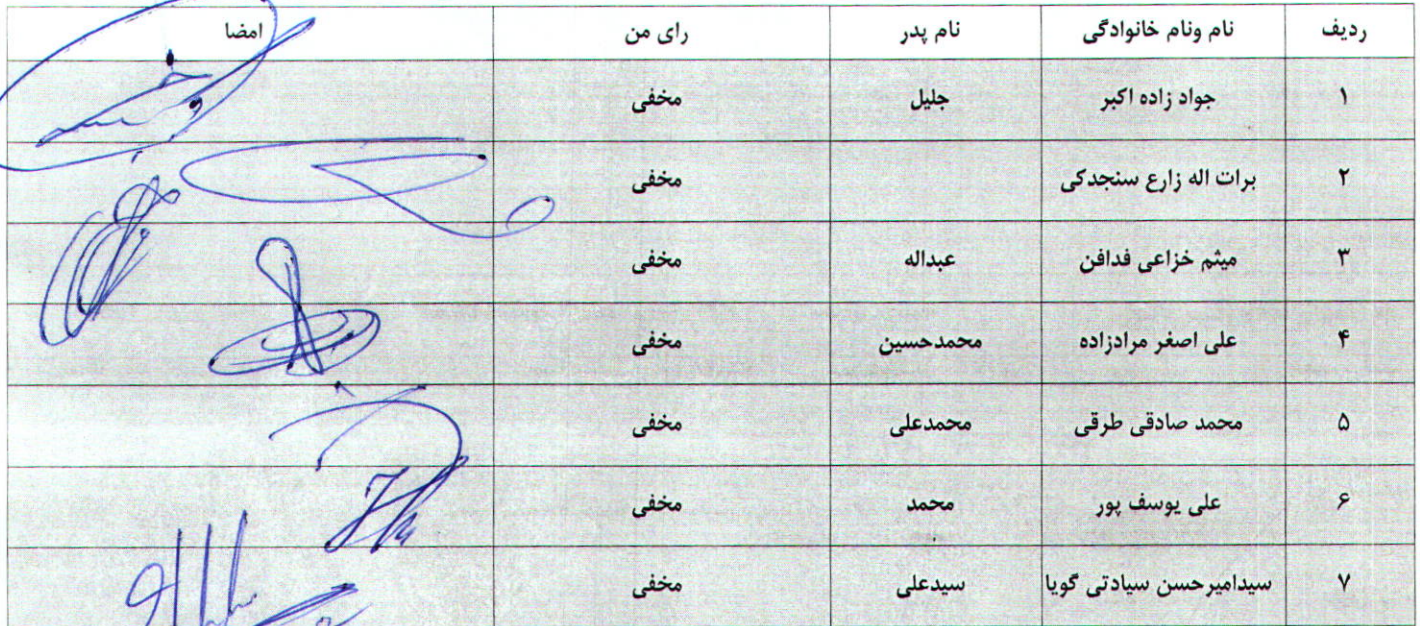 ردیف نام ونام خانوادگی نام پدر رای من امضا
۱ جواد زاده اکبر جلیل مخفی
۲ برات اله زارع سنجدکی مخفی
۳ میثم خزاعی فدافن عبداله مخفی
۴ علی اصغر مرادزاده محمدحسین مخفی
۵ محمد صادقی طرقی محمدعلی مخفی
۶ علی یوسف پور محمد مخفی
۷ سیدامیرحسن سیادتی گویا سیدعلی مخفی